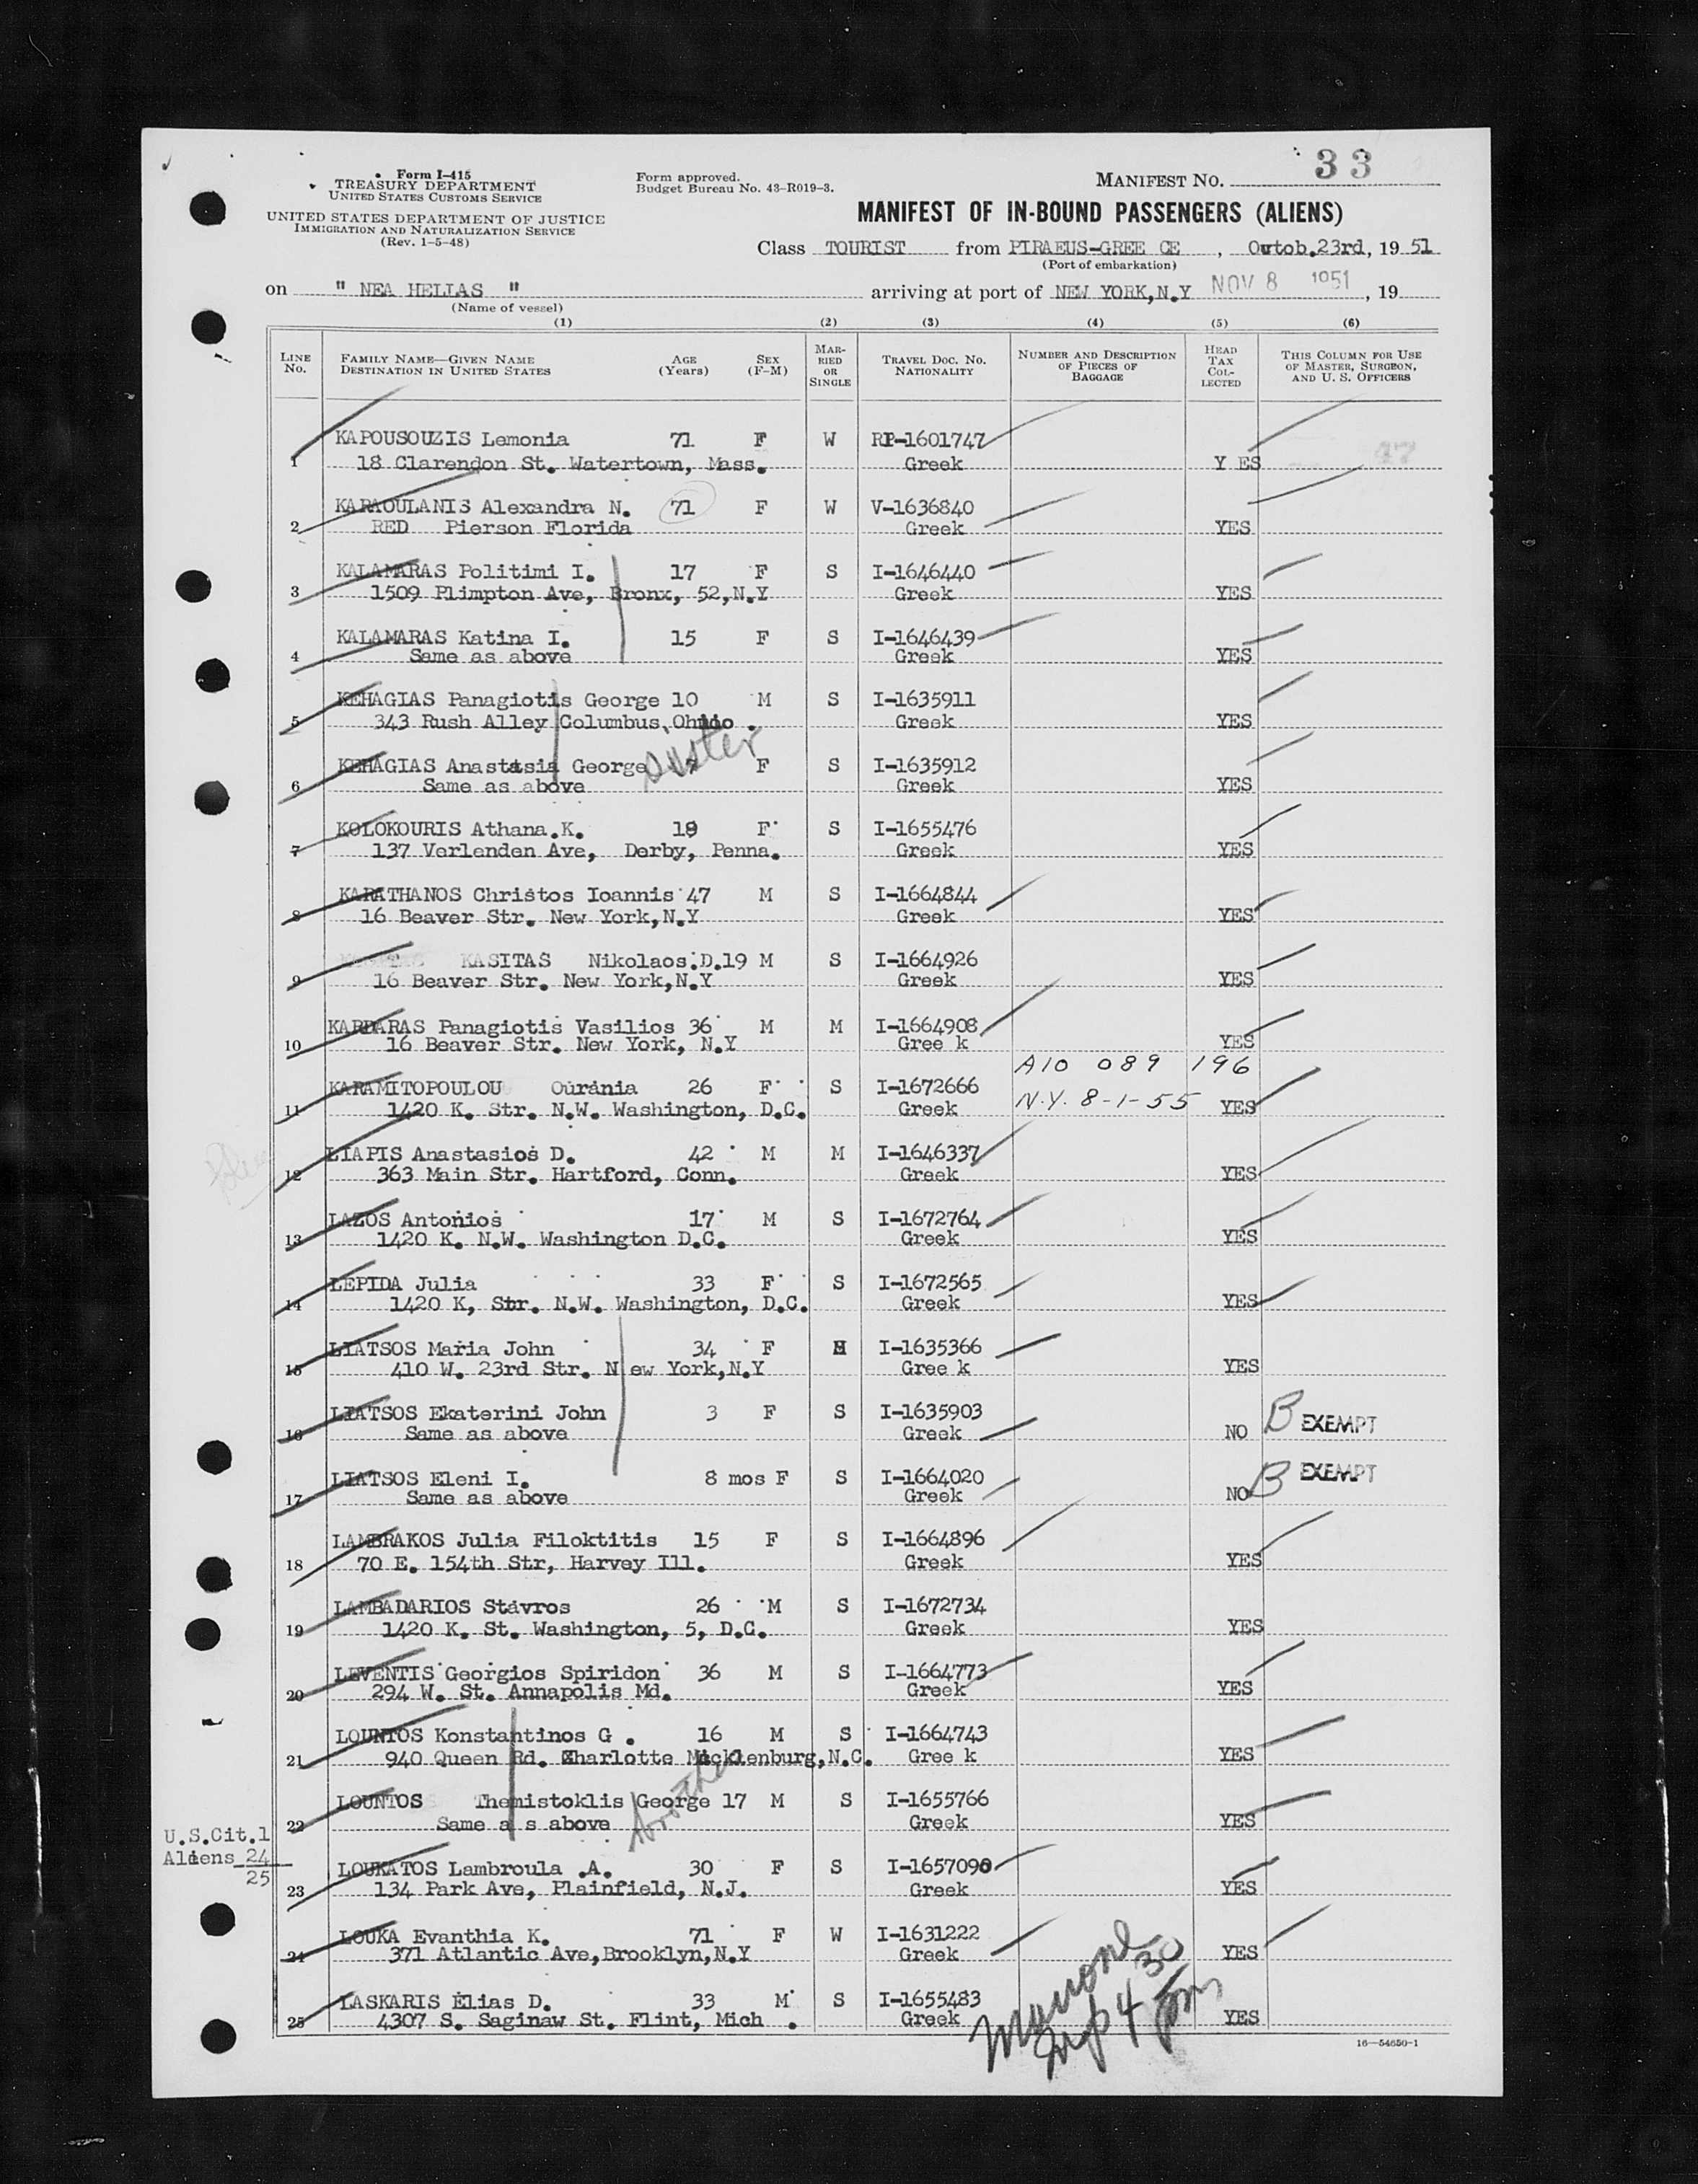 Form I-415
TREASURY DEPARTMENT
UNITED STATES CUSTOMS SERVICE
UNITED STATES DEPARTMENT OF JUSTICE
IMMIGRATION AND NATURALIZATION SERVICE
(Rev. 1-5-48)
Form approved.
Budget Bureau No. 43-R019-3.
MANIFEST NO. 33
MANIFEST OF IN-BOUND PASSENGERS (ALIENS)
Class TOURIST from PIRAEUS-GREE CE , Outob.23rd, 19 51
(Port of embarkation)
on " NEA HELLAS " arriving at port of NEW YORK,N.Y NOV 8 1951 , 19
(Name of vessel)
(1) (2) (3) (4) (5) (6)
LINE No. FAMILY NAME—GIVEN NAME DESTINATION IN UNITED STATES AGE (Years) SEX (F-M) MARRIED OR SINGLE TRAVEL DOC. NO. NATIONALITY NUMBER AND DESCRIPTION OF PIECES OF BAGGAGE HEAD TAX COLLECTED THIS COLUMN FOR USE OF MASTER, SURGEON, AND U. S. OFFICERS
KAPOUSOUZIS Lemonia 71 F W RP-1601747
1 18 Clarendon St. Watertown, Mass. Greek Y ES 47
KARAOULANIS Alexandra N. 71 F W V-1636840
2 RED Pierson Florida Greek YES
KALAMARAS Politimi I. 17 F S I-1646440
3 1509 Plimpton Ave, Bronx, 52,N.Y Greek YES
KALAMARAS Katina I. 15 F S I-1646439
4 Same as above Greek YES
KEHAGIAS Panagiotis George 10 M S I-1635911
5 343 Rush Alley Columbus,Ohio . Greek YES
KEHAGIAS Anastasia George sister F S I-1635912
6 Same as above Greek YES
KOLOKOURIS Athana.K. 18 F S I-1655476
7 137 Verlenden Ave, Derby, Penna. Greek YES
KARATHANOS Christos Ioannis 47 M S I-1664844
8 16 Beaver Str. New York,N.Y Greek YES
KASITAS Nikolaos.D.19 M S I-1664926
9 16 Beaver Str. New York,N.Y Greek YES
KARBARAS Panagiotis Vasilios 36 M M I-1664908
10 16 Beaver Str. New York, N.Y Gree k YES
A10 089 196
KARAMITOPOULOU Ourania 26 F S I-1672666
11 1420 K. Str. N.W. Washington, D.C. Greek N.Y. 8-1-55 YES
LIAPIS Anastasios D. 42 M M I-1646337
12 363 Main Str. Hartford, Conn. Greek YES
LAZOS Antonios 17 M S I-1672764
13 1420 K. N.W. Washington D.C. Greek YES
LEPIDA Julia 33 F S I-1672565
14 1420 K, Str. N.W. Washington, D.C. Greek YES
LIATSOS Maria John 34 F M I-1635366
15 410 W. 23rd Str. N ew York,N.Y Gree k YES
LIATSOS Ekaterini John 3 F S I-1635903
16 Same as above Greek NO B EXEMPT
LIATSOS Eleni I. 8 mos F S I-1664020
17 Same as above Greek NO B EXEMPT
LAMBRAKOS Julia Filoktitis 15 F S I-1664896
18 70 E. 154th Str, Harvey Ill. Greek YES
LAMBADARIOS Stavros 26 M S I-1672734
19 1420 K. St. Washington, 5, D.C. Greek YES
LEVENTIS Georgios Spiridon 36 M S I-1664773
20 294 W. St. Annapolis Md. Greek YES
LOUNTOS Konstantinos G . 16 M S I-1664743
21 940 Queen Rd. Charlotte Mecklenburg,N.C. Gree k YES
LOUNTOS Themistoklis George 17 M S I-1655766
brother
22 Same a s above Greek YES
U.S.Cit.1
Aliens 24
25
LOUKATOS Lambroula .A. 30 F S I-1657090
23 134 Park Ave, Plainfield, N.J. Greek YES
LOUKA Evanthia K. 71 F W I-1631222
24 371 Atlantic Ave,Brooklyn,N.Y Greek YES
LASKARIS Elias D. 33 M S I-1655483
25 4307 S. Saginaw St. Flint, Mich . Greek YES
4 30 pm
16—54650-1